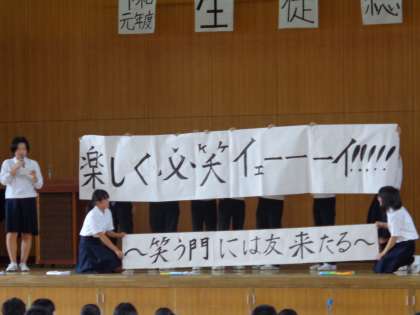 令和
元年度
生徒総
楽しく必笑イェーーーイ!!!!!
~笑う門には友来たる~